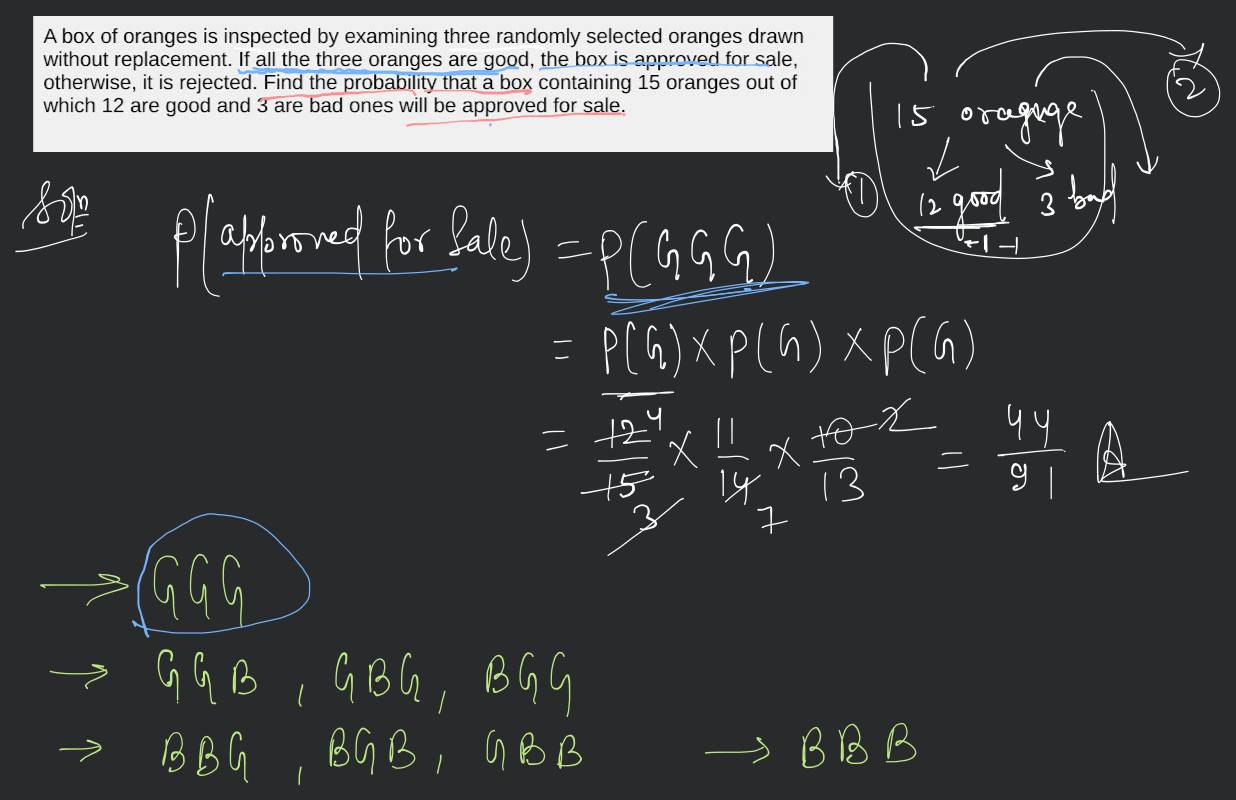 A box of oranges is inspected by examining three randomly selected oranges drawn
without replacement. If all the three oranges are good, the box is approved for sale,
otherwise, it is rejected. Find the probability that a box containing 15 oranges out of
which 12 are good and 3 are bad ones will be approved for sale.
15 oragnge
12 good 3 bad
-1 -1
1
2
Soln
P(approved for Sale) = P(GGG)
= P(G) × P(G) × P(G)
= 12/15 × 11/14 × 10/13 = 44/91 A
4 2
3 7
→ GGG
→ GGB, GBG, BGG
→ BBG, BGB, GBB → BBB